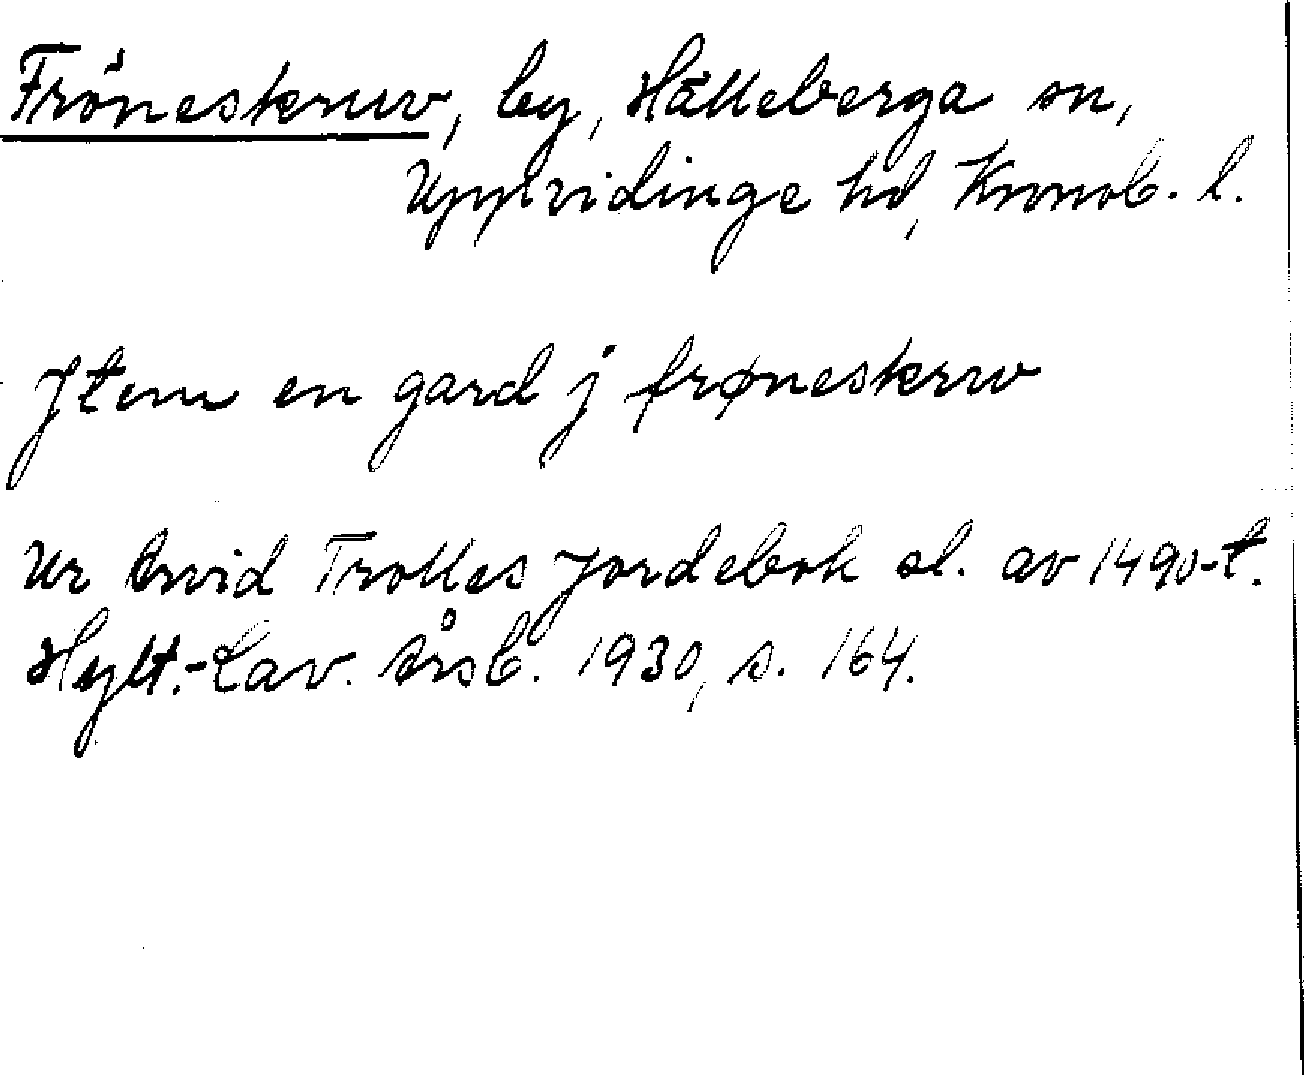 Fröneskruv, by, Hälleberga sn,
Uppvidinge hd, Kronob. l.
Jtem en gard j frøneskrw
Ur Arvid Trolles Jordebok sl. av 1490-t.
Hylt.-Cav. årsb. 1930, s. 164.